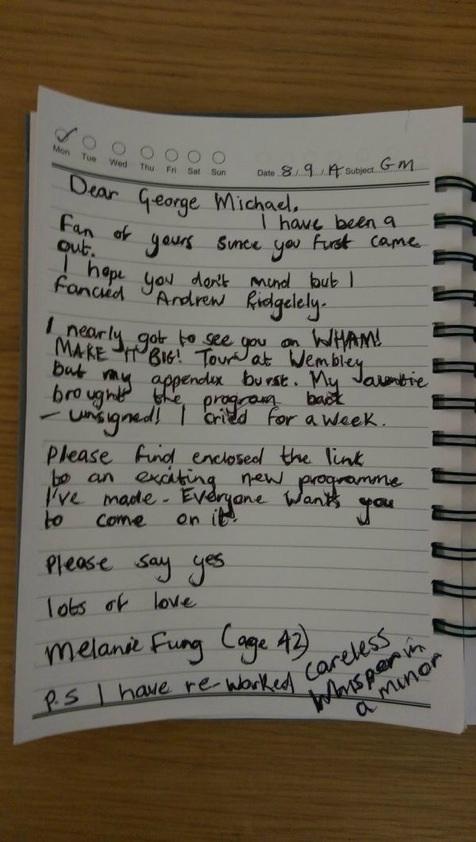 Mon Tue Wed Thu Fri Sat Sun
Date 8/9/14 Subject GM
Dear George Michael.
I have been a
fan of yours since you first came
out.
I hope you don't mind but I
fancied Andrew Ridgelely.
I nearly got to see you on WHAM!
MAKE IT BIG! Tour at Wembley
but my appendix burst. My auntie
brought the program back
– unsigned! I cried for a week.
Please find enclosed the link
to an exciting new programme
I've made - Everyone wants you
to come on it!
Please say yes
lots of love
Melanie Fung (age 42)
P.S I have re-worked careless
Whisper in
a minor